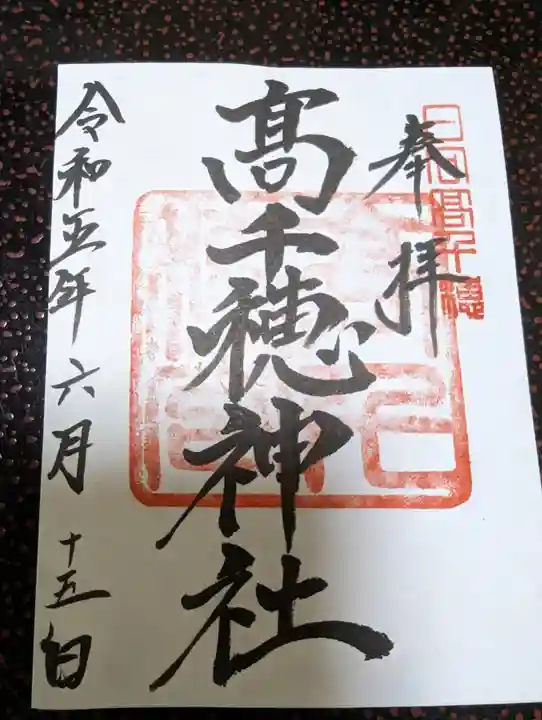 奉拝
日向高千穂
髙千穂神社
令和五年六月十五日